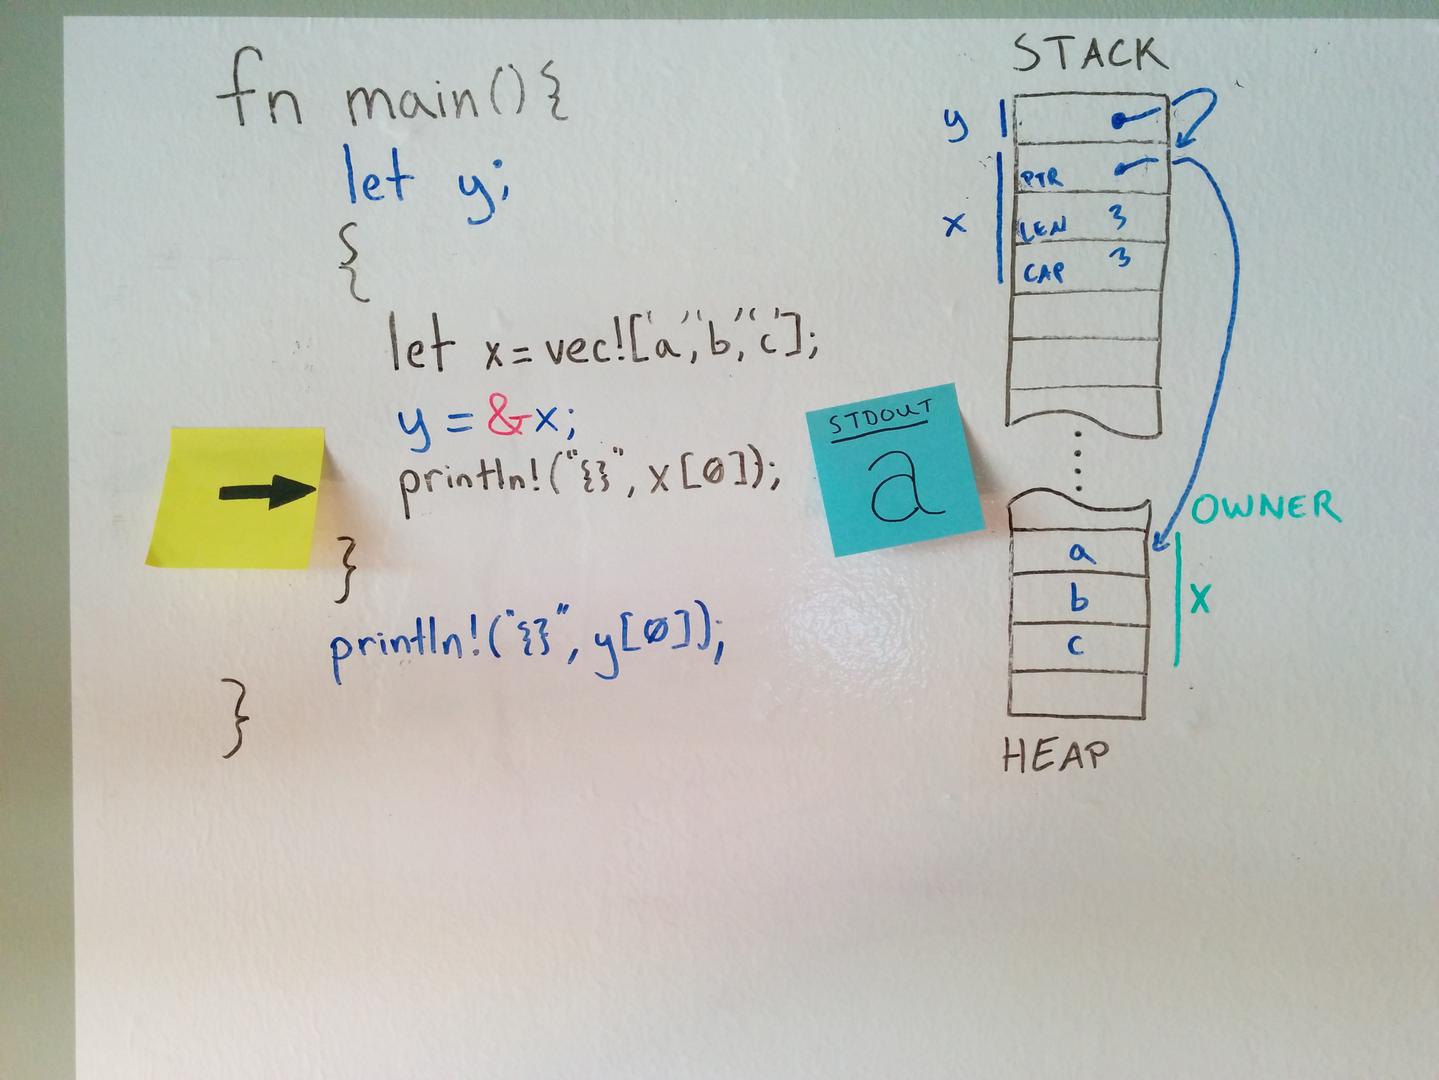 fn main(){
let y;
{
let x=vec!['a','b','c'];
y = &x;
println!("{}", x[0]);
}
println!("{}", y[0]);
}
STDOUT
a
STACK
y
x
PTR
LEN 3
CAP 3
OWNER
a
b
c
X
HEAP